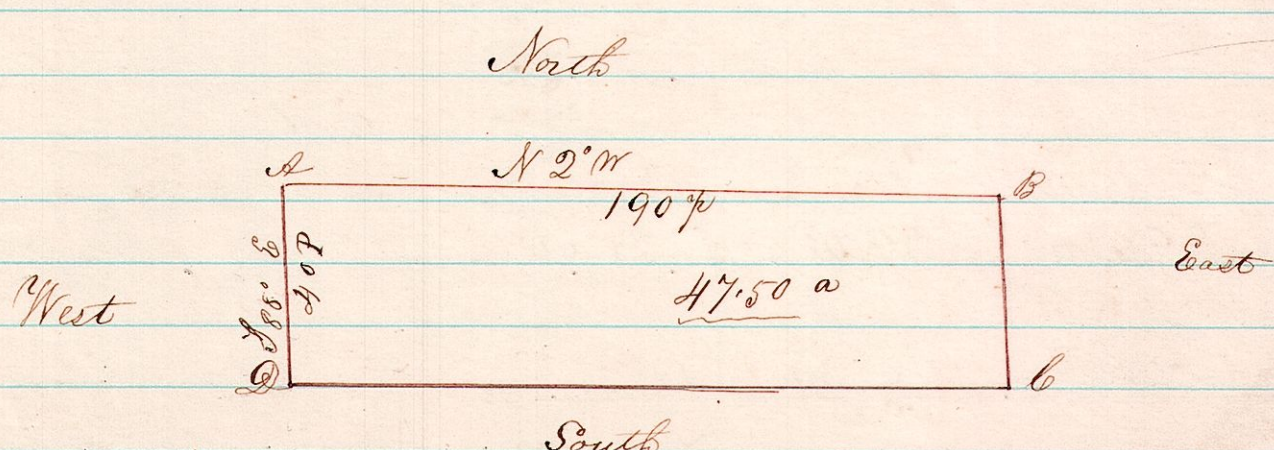 North
A
N 2° W
B
190 p
S 88° E
40 P
47.50 a
West
East
D
C
South